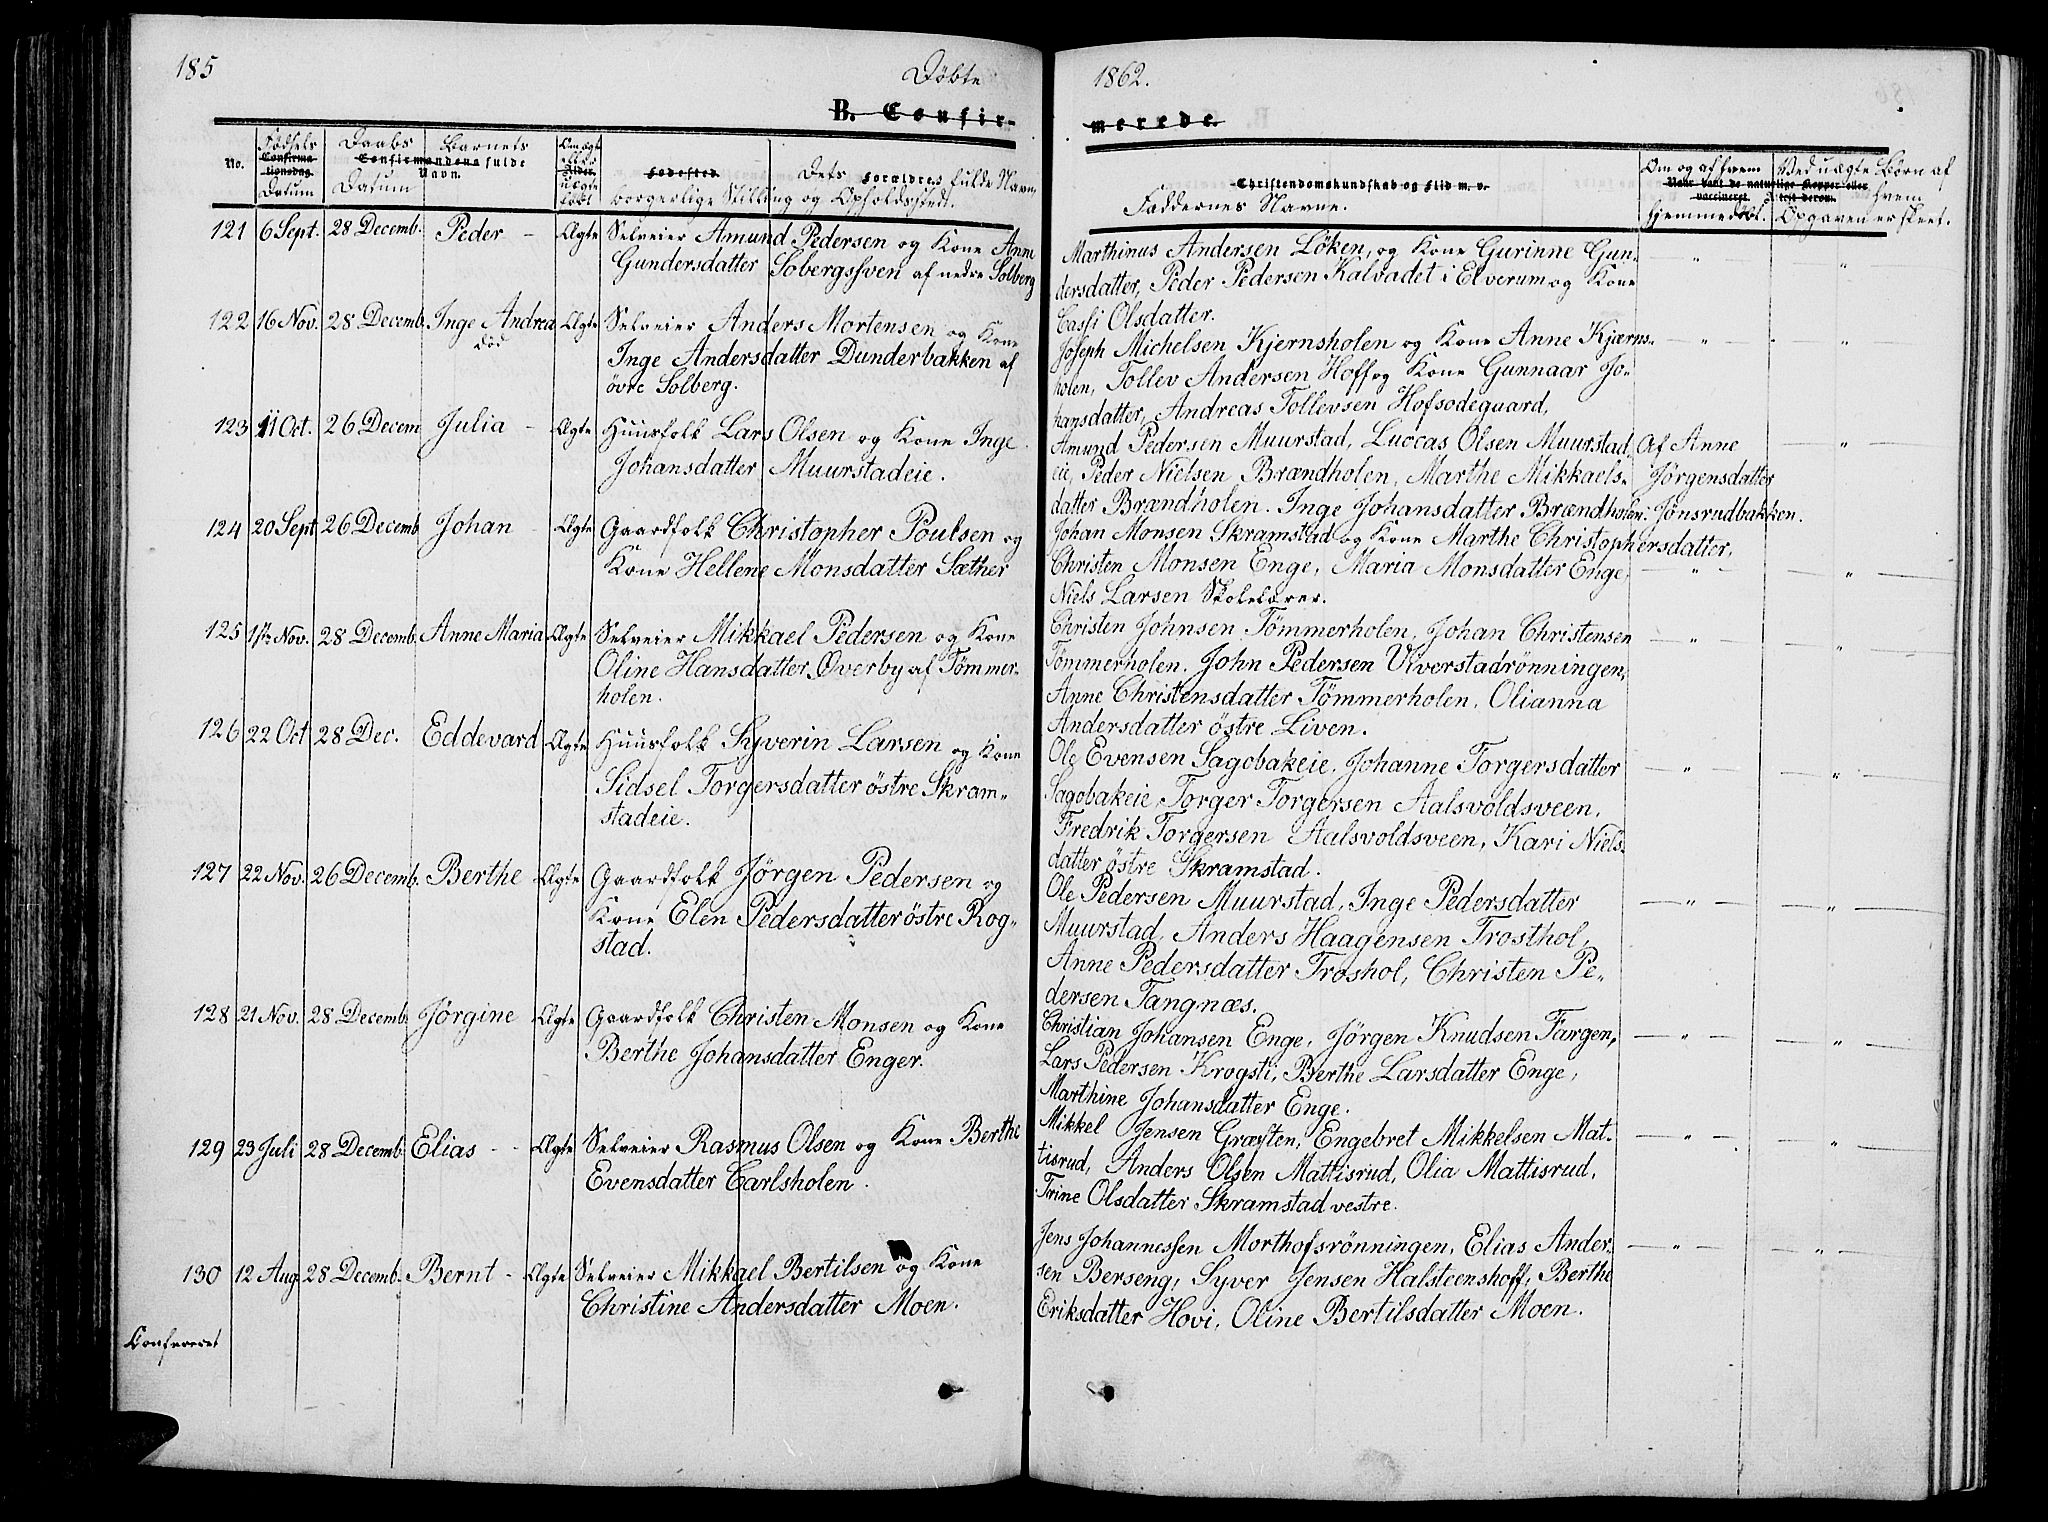 185
Döbte
1862.
B. Confir-
merede.
No.
Fødsels
Confirma-
tionsdag.
Datum
Daabs
Barnets
Confirmandens fulde
Navn.
Datum
Om ægte
eller
Alder.
uægte
født
Fødested
Dets Forældres fulde Navn
borgerlige Stilling og Opholdssted.
Christendomskundskab og Flid m. v.
Faddernes Navne.
Om og af hvem
hjemmedöbt.
Ved uægte Börn af
hvem
Opgaven er skeet.
121 6 Sept. 28 Decemb. Peder - Ægte Selveier Amund Pedersen og Kone Anne
Gundersdatter Sobergssven af nedre Solberg
Marthinus Andersen Löken, og Kone Gurinne Gun-
dersdatter, Peder Pedersen Kalvadet i Elverum og Kone
Cassi Olsdatter.
122 16 Nov. 28 Decemb. Inge Andrea Ægte Selveier Anders Mortensen og Kone
død
Inge Andersdatter Dunderbakken af
övre Solberg.
Joseph Michelsen Kjernsholen og Kone Anne Kjærns-
holen, Tollev Andersen Hoff og Kone Gunnaar Jo-
hansdatter, Andreas Tollevsen Hofsodeguard,
123 11 Oct. 26 Decem Julia - Ægte Huusfolk Lars Olsen og Kone Inge
Johansdatter Muurstadeie.
Amund Pedersen Muurstad, Luccas Olsen Muurstad
eie, Peder Nielsen Brændholen, Marthe Mikkaels-
datter Brændholen. Inge Johansdatter Brændholen.
Af Anne
Jörgensdatter
Jönsrudbakken.
124 20 Sept 26 Decemb Johan - Ægte Gaardfolk Christopher Poulsen og
Kone Hellene Monsdatter Sæther
Johan Monsen Skramstad og Kone Marthe Christophersdatter,
Christen Monsen Enge, Maria Monsdatter Enge,
Niels Larsen Skolelærer.
125 1ste Nov. 28 Decemb. Anne Maria Ægte Selveier Mikkael Pedersen og Kone
Oline Hansdatter Overby af Tömmer-
holen.
Christen Johnsen Tömmerholen, Johan Christensen
Tömmerholen. John Pedersen Ulverstadrönningen,
Anne Christensdatter Tömmerholen. Olianna
Andersdatter östre Liven.
126 22 Oct 28 Dec. Eddevard Ægte Huusfolk Syverin Larsen og Kone
Sidsel Torgersdatter östre Skram-
stadeie.
Ole Evensen Sagobakeie. Johanne Torgersdatter
Sagobakeie, Torger Torgersen Aalsvoldsveen,
Fredrik Torgersen Aalsvoldsveen, Kari Niels-
datter östre Skramstad.
127 22 Nov. 26 Decemb. Berthe - Ægte Gaardfolk Jörgen Pedersen og
Kone Elen Pedersdatter östre Rog-
stad.
Ole Pedersen Muurstad, Inge Pedersdatter
Muurstad, Anders Haagensen Trosthol,
Anne Pedersdatter Troshol, Christen Pe-
dersen Tangnæs.
128 21 Nov. 28 Decemb. Jörgine - Ægte Gaardfolk Christen Monsen og Kone
Berthe Johansdatter Enger.
Christian Johansen Enge, Jörgen Knudsen Fargen,
Lars Pedersen Krogsti, Berthe Larsdatter Enge,
Marthine Johansdatter Enge.
129 23 Juli 28 Decemb. Elias - - Ægte Selveier Rasmus Olsen og Kone Berthe
Evensdatter Carlsholen.
Mikkel Jensen Græften, Engebret Mikkelsen Mat-
tisrud, Anders Olsen Mattisrud, Olia Mattisrud,
Trine Olsdatter Skramstad vestre.
130 12 Aug 28 Decemb. Bernt - Ægte Selveier Mikkael Bertilsen og Kone
Christine Andersdatter Moen.
Jens Johannessen Morthofsrönningen, Elias Ander-
sen Berseng, Syver Jensen Halsteenshoff, Berthe
Eriksdatter Hovi, Oline Bertilsdatter Moen.
Confereret